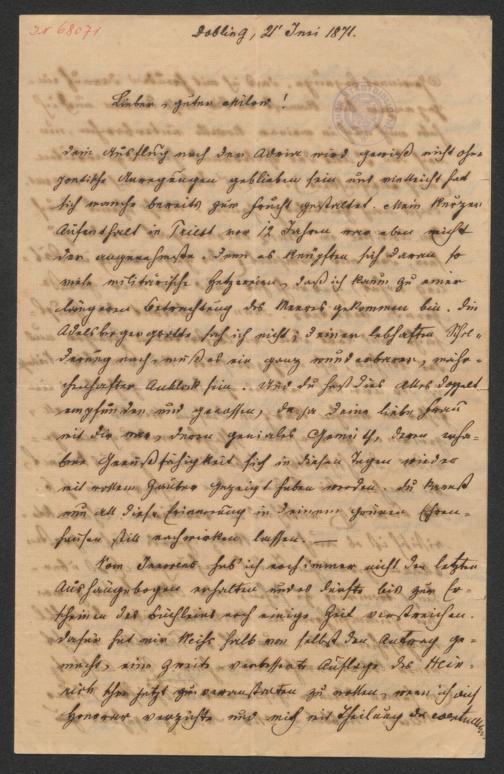 IN 68071
Döbling, 21 Juni 1871.
Lieber, guter Milow!
Dein Ausflug nach der Adria wird gewiß nicht ohne
poetische Anregungen geblieben sein und vielleicht hat
sich manche bereits zur Frucht gestaltet. Mein kurzer
Aufenthalt in Triest vor 12 Jahren war eben nicht
der angenehmste. Denn es knüpften sich daran so
viele militärische Hetzereien, daß ich kaum zu einer
längeren Betrachtung des Meeres gekommen bin. Die
Adelsbergergrotte sah ich nicht; deiner lebhaften Schil-
derung nach, muß es ein ganz wunderbarer, mähr-
chenhafter Anblick sein. Und du hast dies Alles doppelt
empfunden und genossen, da ja deine liebe Frau
mit dir war, deren geniales Gemüth, deren
Genußfähigkeit sich in diesen Tagen wieder
mit vollem Zauber gezeigt haben werden. Du kannst
nun all diese Erinnerung in deinem grünen Ehren-
hausen still nachwirken lassen. —
Vom Innocens hab ich noch immer nicht den letzten
Aushängebogen erhalten und es dürfte bis zum Er-
scheinen des Büchleins noch einige Zeit verstreichen.
Dafür hat mir Weiß halb von selbst den Antrag ge-
macht, eine zweite verbesserte Auflage des Hein-
rich schon jetzt zu veranstalten zu wollen, wenn ich auf
Honorar verzichte und mich mit Theilung des eventuellen